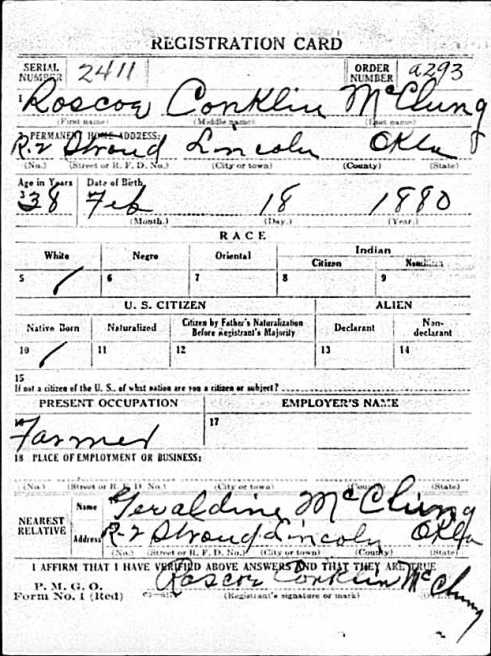 REGISTRATION CARD
SERIAL NUMBER 2411 ORDER NUMBER a293
1 Roscoe Conklin McClung
(First name) (Middle name) (Last name)
2 PERMANENT HOME ADDRESS:
R.2 Stroud Lincoln Okla
(No.) (Street or R. F. D. No.) (City or town) (County) (State)
Age in Years Date of Birth
3 38 Feb 18 1880
(Month.) (Day.) (Year.)
RACE
White Negro Oriental Indian
Citizen Noncitizen
5 / 6 7 8 9
U. S. CITIZEN ALIEN
Native Born Naturalized Citizen by Father's Naturalization Before Registrant's Majority Declarant Non-declarant
10 / 11 12 13 14
15
If not a citizen of the U. S., of what nation are you a citizen or subject?
PRESENT OCCUPATION EMPLOYER'S NAME
16 Farmer 17
18 PLACE OF EMPLOYMENT OR BUSINESS:
(No.) (Street or R. F. D. No.) (City or town) (County) (State)
NEAREST RELATIVE
Name Geraldine McClung
Address R-2 Stroud Lincoln Okla
(No.) (Street or R. F. D. No.) (City or town) (County) (State)
I AFFIRM THAT I HAVE VERIFIED ABOVE ANSWERS AND THAT THEY ARE TRUE
P. M. G. O.
Form No. 1 (Red) Roscoe Conklin McClung
(Registrant's signature or mark)